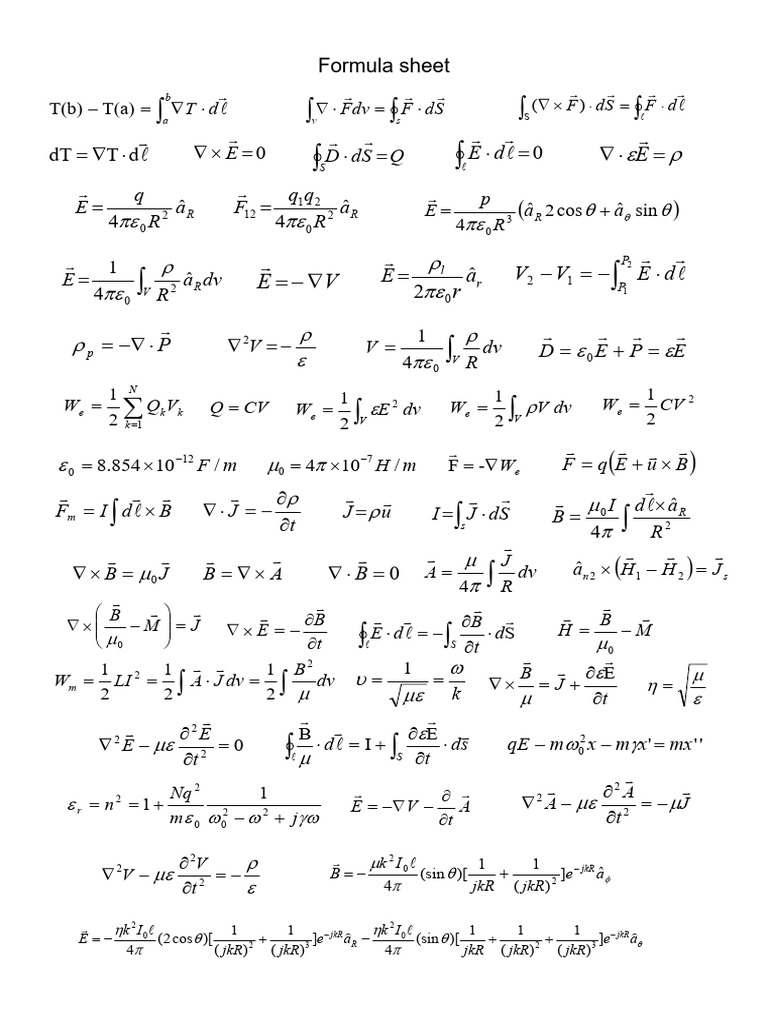 Formula sheet
T(b) – T(a) = ∫_a^b ∇T · dℓ⃗    ∫_v ∇ · F⃗dv = ∮_s F⃗ · dS⃗    ∫_S (∇ × F⃗) · dS⃗ = ∮_ℓ F⃗ · dℓ⃗
dT = ∇T · dℓ⃗    ∇ × E⃗ = 0    ∮_S D⃗ · dS⃗ = Q    ∮_ℓ E⃗ · dℓ⃗ = 0    ∇ · εE⃗ = ρ
E⃗ = q/(4πε₀R²) â_R    F⃗₁₂ = q₁q₂/(4πε₀R²) â_R    E⃗ = p/(4πε₀R³) (â_R 2cosθ + â_θ sinθ)
E⃗ = 1/(4πε₀) ∫_V ρ/R² â_R dv    E⃗ = −∇V    E⃗ = ρ_l/(2πε₀r) â_r    V₂ − V₁ = −∫_{P₁}^{P₂} E⃗ · dℓ⃗
ρ_p = −∇ · P⃗    ∇²V = −ρ/ε    V = 1/(4πε₀) ∫_V ρ/R dv    D⃗ = ε₀E⃗ + P⃗ = εE⃗
W_e = 1/2 ∑_{k=1}^N Q_k V_k    Q = CV    W_e = 1/2 ∫_V εE² dv    W_e = 1/2 ∫_V ρV dv    W_e = 1/2 CV²
ε₀ = 8.854×10⁻¹² F/m    μ₀ = 4π×10⁻⁷ H/m    F⃗ = -∇W_e    F⃗ = q(E⃗ + u⃗ × B⃗)
F⃗_m = I ∫ dℓ⃗ × B⃗    ∇ · J⃗ = −∂ρ/∂t    J⃗ = ρu⃗    I = ∫_s J⃗ · dS⃗    B⃗ = μ₀I/4π ∫ dℓ⃗×â_R/R²
∇ × B⃗ = μ₀J⃗    B⃗ = ∇ × A⃗    ∇ · B⃗ = 0    A⃗ = μ/4π ∫ J⃗/R dv    â_n2 × (H⃗₁ − H⃗₂) = J⃗_s
∇ × (B⃗/μ₀ − M⃗) = J⃗    ∇ × E⃗ = −∂B⃗/∂t    ∮_ℓ E⃗ · dℓ⃗ = −∫_S ∂B⃗/∂t · dS⃗    H⃗ = B⃗/μ₀ − M⃗
W_m = 1/2 LI² = 1/2 ∫ A⃗ · J⃗ dv = 1/2 ∫ B²/μ dv    υ = 1/√(με) = ω/k    ∇ × B⃗/μ = J⃗ + ∂εE⃗/∂t    η = √(μ/ε)
∇²E⃗ − με ∂²E⃗/∂t² = 0    ∮_ℓ B⃗/μ · dℓ⃗ = I + ∫_S ∂εE⃗/∂t · ds⃗    qE − mω₀²x − mγx' = mx''
ε_r = n² = 1 + Nq²/(mε₀) 1/(ω₀² − ω² + jγω)    E⃗ = −∇V − ∂/∂t A⃗    ∇²A⃗ − με ∂²A⃗/∂t² = −μJ⃗
∇²V − με ∂²V/∂t² = −ρ/ε    B⃗ = −μk²I₀ℓ/4π (sinθ)[1/jkR + 1/(jkR)²]e^{−jkR} â_φ
E⃗ = −ηk²I₀ℓ/4π (2cosθ)[1/(jkR)² + 1/(jkR)³]e^{−jkR} â_R − ηk²I₀ℓ/4π (sinθ)[1/jkR + 1/(jkR)² + 1/(jkR)³]e^{−jkR} â_θ